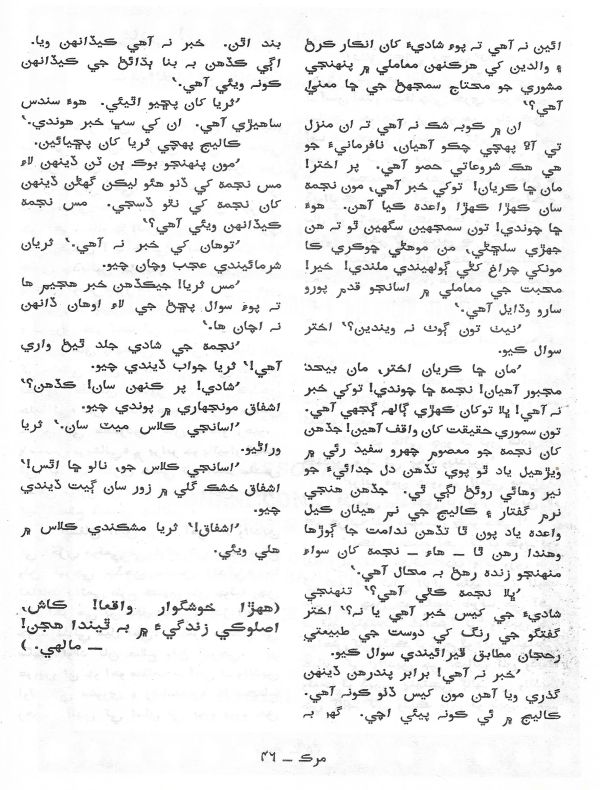 ائين نہ آهي تہ پوءِ شاديءَ کان انڪار ڪرڻ
۽ والدين کي هرڪنهن معاملي ۾ پنهنجي
مشوري جو محتاج سمجهڻ جي ڇا معنيٰ
آهي؟‘
ان ۾ ڪوبہ شڪ نہ آهي تہ ان منزل
تي آءٌ پهچي چڪو آهيان، نافرمانيءَ جو
هي هڪ شروعاتي حصو آهي. پر اختر!
مان ڇا ڪريان! توکي خبر آهي، مون نجمة
سان ڪهڙا ڪهڙا واعدہ ڪيا آهن. هوءَ
ڇا چوندي! تون سمجهين سگهين ٿو تہ هن
جهڙي سلڇڻي، من موهڻي ڇوڪري ڪا
مونکي چراغ کڻي ڳولهيندي ملندي! خير!
محبت جي معاملي ۾ اسانجو قدم پورو
سارو وڌايل آهي.‘
’نيٺ تون ڳوٺ نہ ويندين؟‘ اختر
سوال ڪيو.
’مان ڇا ڪريان اختر، مان بيحد
مجبور آهيان! نجمة ڇا چوندي! توکي خبر
نہ آهي! ڀلا توکان ڪهڙي ڳالهہ ڳجهي آهي.
تون سموري حقيقت کان واقف آهين! جڏهن
کان نجمة جو معصوم چهرو سفيد رئي ۾
ويڙهيل ياد ٿو پوي تڏهن دل جدائيءَ جو
نير وهائي روئڻ لڳي ٿي. جڏهن هنجي
نرم گفتار ۽ ڪاليج جي نم هيٺان ڪيل
واعدہ ياد پون ٿا تڏهن ندامت جا ڳوڙها
وهندا رهن ٿا ــ هاءِ ــ نجمة کان سواءِ
منهنجو زندہ رهڻ بہ محال آهي.‘
’ڀلا نجمة ڪٿي آهي؟‘ تنهنجي
شاديءَ جي کيس خبر آهي يا نہ؟‘ اختر
گفتگو جي رنگ کي دوست جي طبيعتي
رحجان مطابق ڦيرائيندي سوال ڪيو.
’خبر نہ آهي! برابر پندرهن ڏينهن
گذري ويا آهن مون کيس ڏٺو ڪونہ آهي.
ڪاليج ۾ ئي ڪونہ پيئي اچي. گهر بہ
بند اٿن. خبر نہ آهي ڪيڏانهن ويا.
اڳي ڪڏهن بہ بنا ٻڌائڻ جي ڪيڏانهن
ڪونہ ويئي آهي.‘
’ثريا کان پڇيو اٿيئي. هوءَ سندس
ساهيڙي آهي. ان کي سڀ خبر هوندي.‘
ڪاليج پهچي ثريا کان پڇيائين.
’مون پنهنجو بوڪ ٻن ٽن ڏينهن لاءِ
مس نجمة کي ڏنو هئو ليڪن گهڻن ڏينهن
کان نجمة کي نٿو ڏسجي. مس نجمة
ڪيڏانهن ويئي آهي؟‘
’توهان کي خبر نہ آهي.‘ ثريان
شرمائيندي عجب وچان چيو.
’مس ثريا! جيڪڏهن خبر هجيم ها
تہ پوءِ سوال پڇڻ جي لاءِ اوهان ڏانهن
نہ اچان ها.‘
’نجمة جي شادي جلد ٿيڻ واري
آهي!‘ ثريا جواب ڏيندي چيو.
’شادي! پر ڪنهن سان! ڪڏهن؟‘
اشفاق مونجهاري ۾ پوندي چيو.
’اسانجي ڪلاس ميٽ سان.‘ ثريا
وراڻيو.
’اسانجي ڪلاس جو، نالو ڇا اٿس!‘
اشفاق خشڪ گلي ۾ زور سان ڳيت ڏيندي
چيو.
’اشفاق!‘ ثريا مشڪندي ڪلاس ۾
هلي ويئي.
(ههڙا خوشگوار واقعا! ڪاش،
اصلوڪي زندگيءَ ۾ بہ ٿيندا هجن!
ــ مالهي. )
مرڪ ــ ۴۶